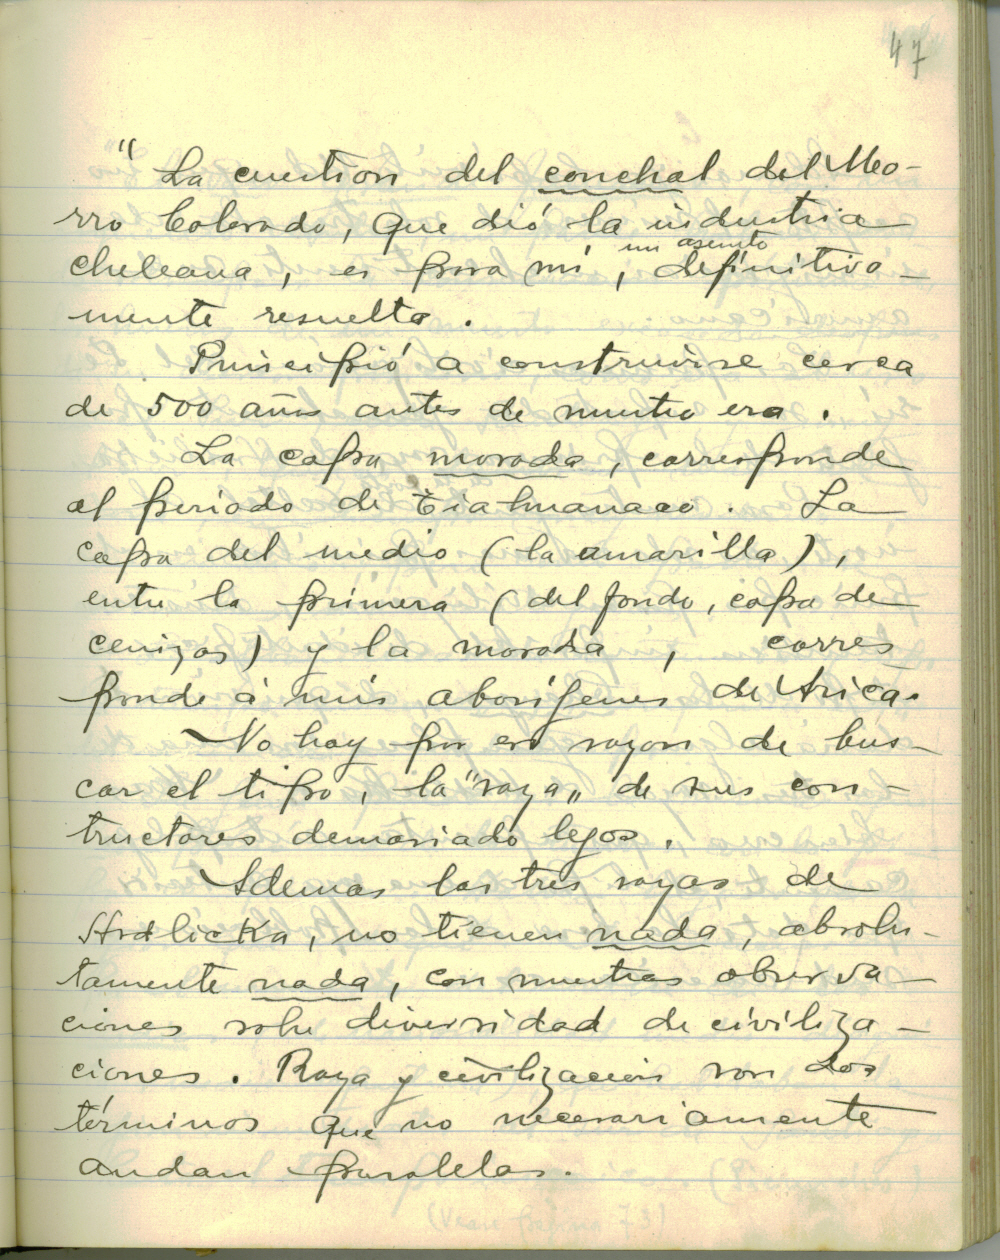 47
" La cuestion del conchal del Mo-
rro Colorado, que dió la industria
cheleana, es para mí, un asunto definitiva-
mente resuelta.
Principió a construirse cerca
de 500 años antes de nuestra era.
La capa morada, corresponde
al periodo de Tiahuanaco. La
capa del medio (la amarilla),
entre la primera (del fondo, capa de
cenizas) y la morada, corres
ponde á mis aborígenes de Arica.
No hay por eso razon de bus-
car el tipo, la "raza" de sus cons-
tructores demasiado lejos.
Ademas las tres razas de
Hrdlicka, no tienen nada, absolu-
tamente nada, con nuestras observa-
ciones sobre diversidad de civiliza-
ciones. Raza y civilizacion son dos
términos que no necesariamente
andan paralelas.